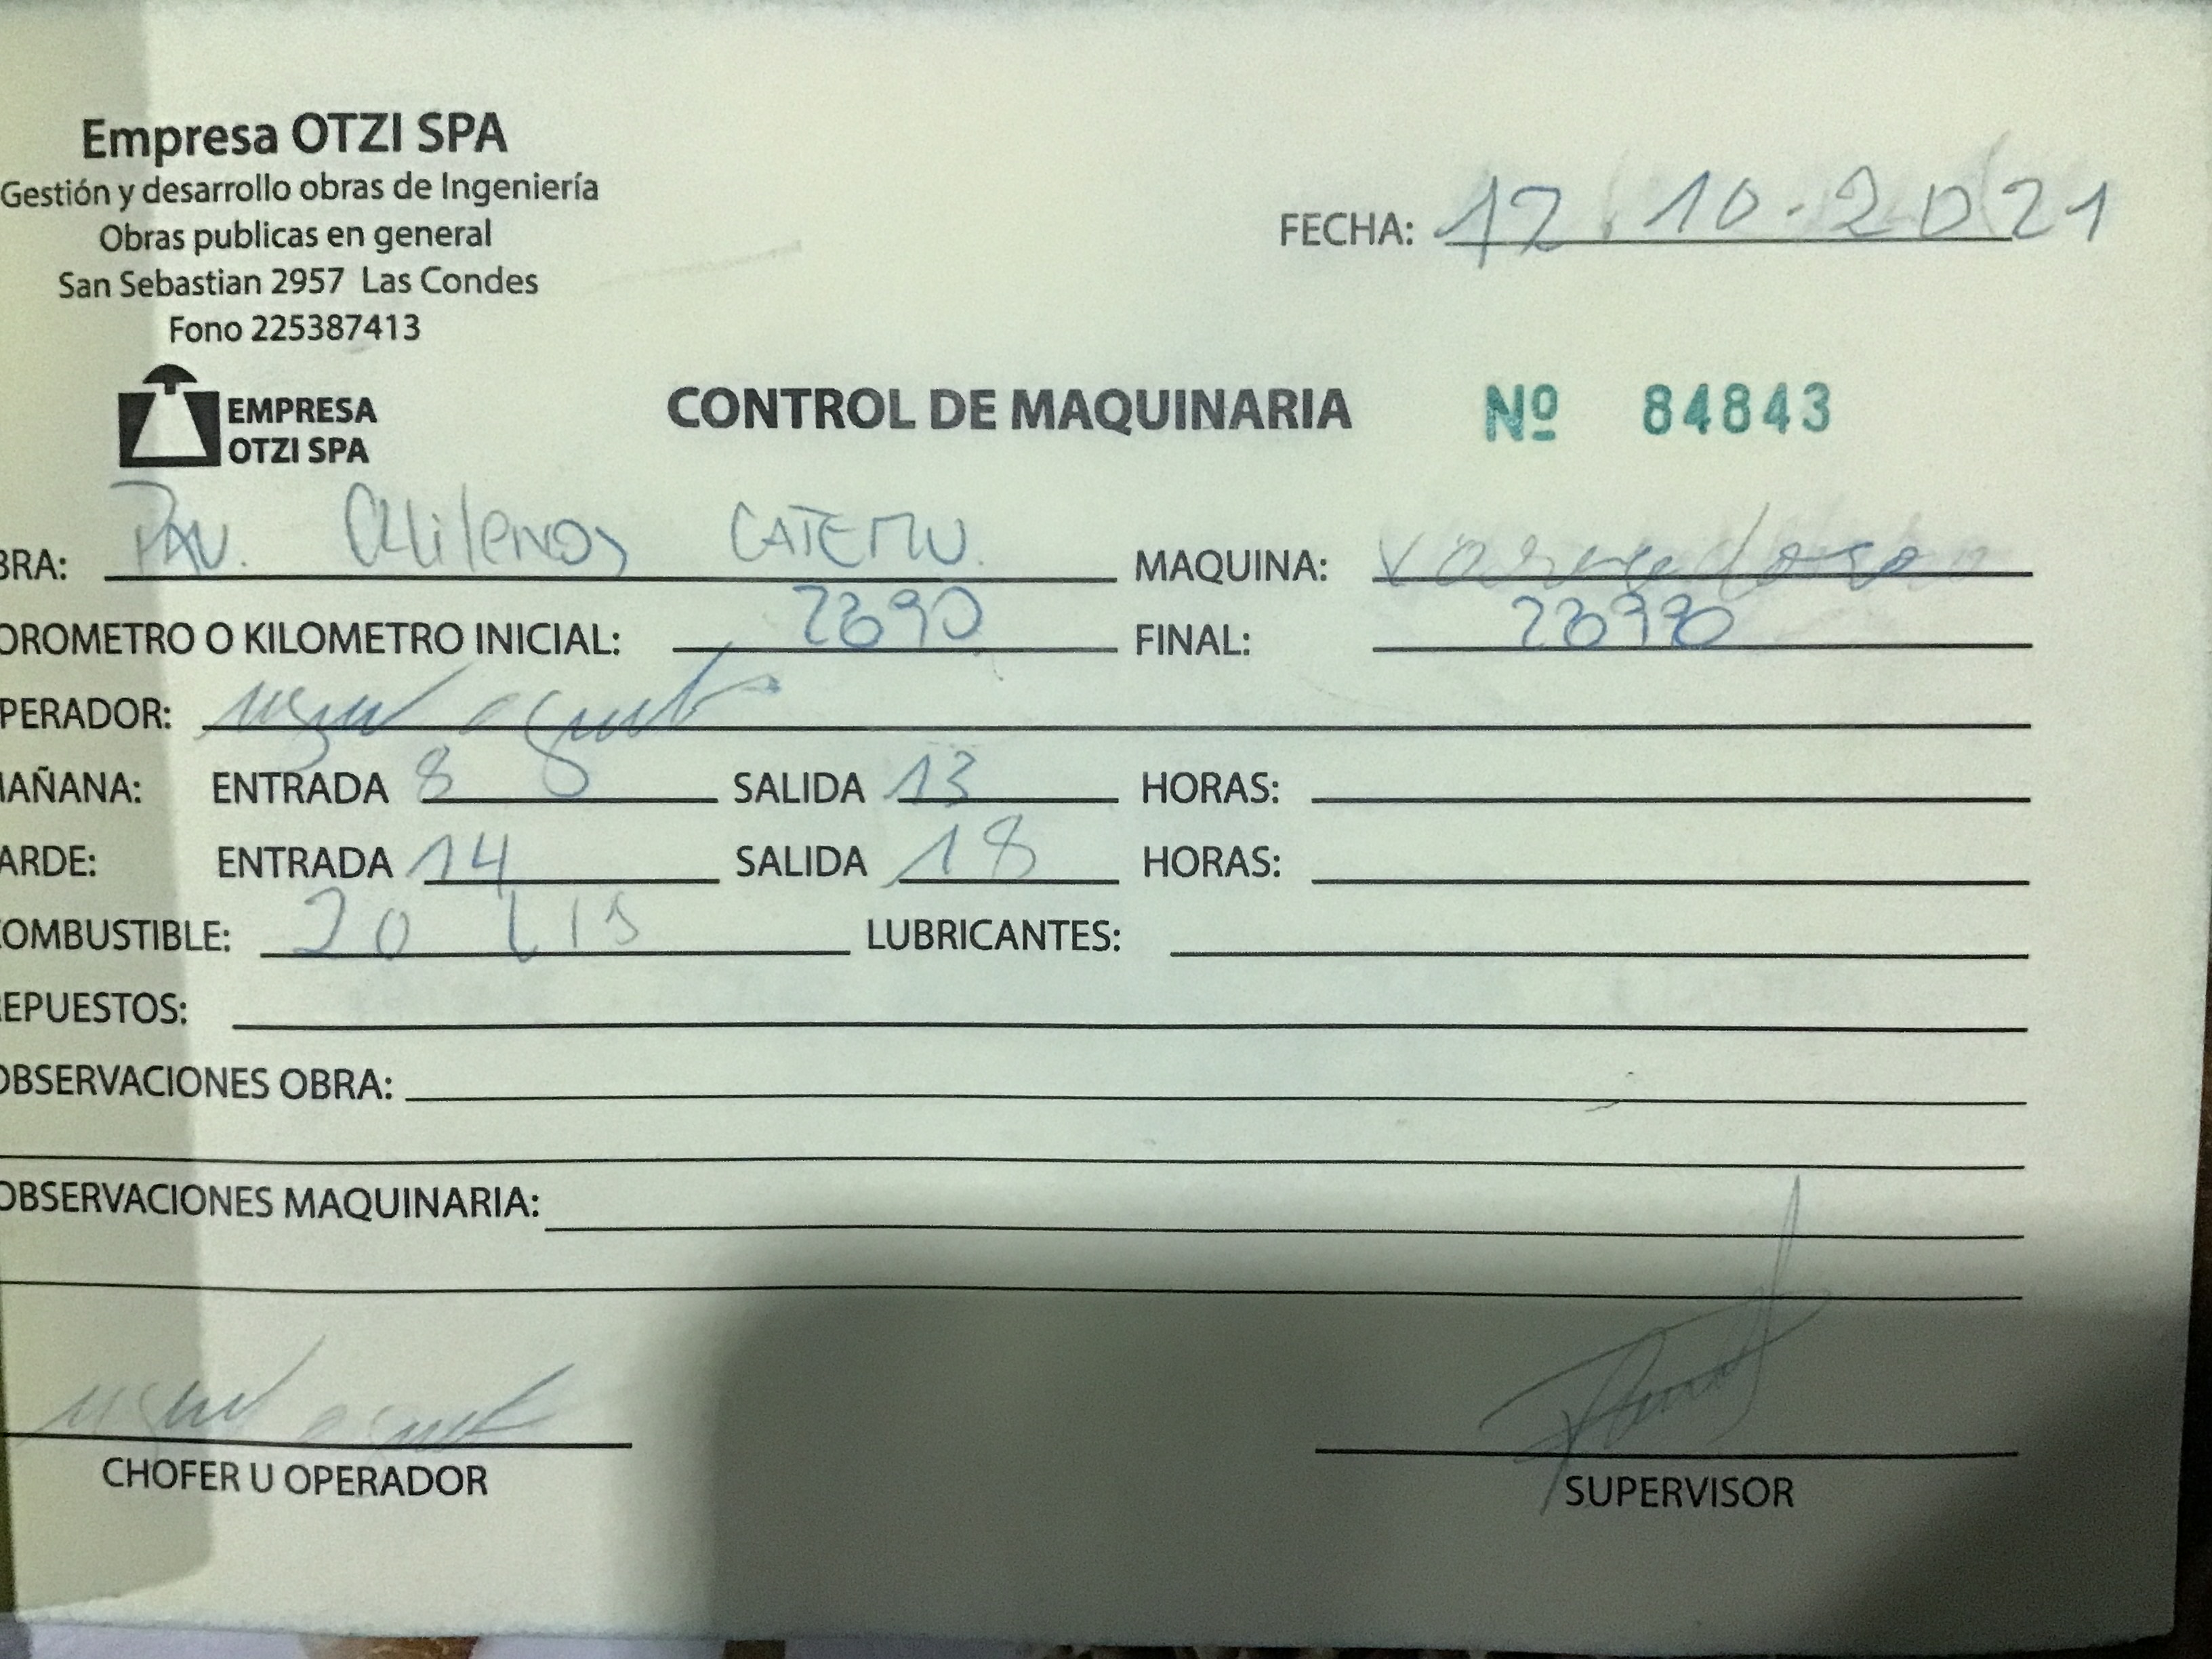 Empresa OTZI SPA
Gestión y desarrollo obras de Ingeniería
Obras publicas en general
San Sebastian 2957 Las Condes
Fono 225387413
FECHA: 12.10.2021
EMPRESA
OTZI SPA
CONTROL DE MAQUINARIA Nº 84843
BRA: PAV. CHilenos CATEMU. MAQUINA:
OROMETRO O KILOMETRO INICIAL: 2890 FINAL:
PERADOR:
MAÑANA: ENTRADA 8 SALIDA 13 HORAS:
ARDE: ENTRADA 14 SALIDA 18 HORAS:
COMBUSTIBLE: 20 LTS LUBRICANTES:
REPUESTOS:
OBSERVACIONES OBRA:
OBSERVACIONES MAQUINARIA:
CHOFER U OPERADOR
SUPERVISOR